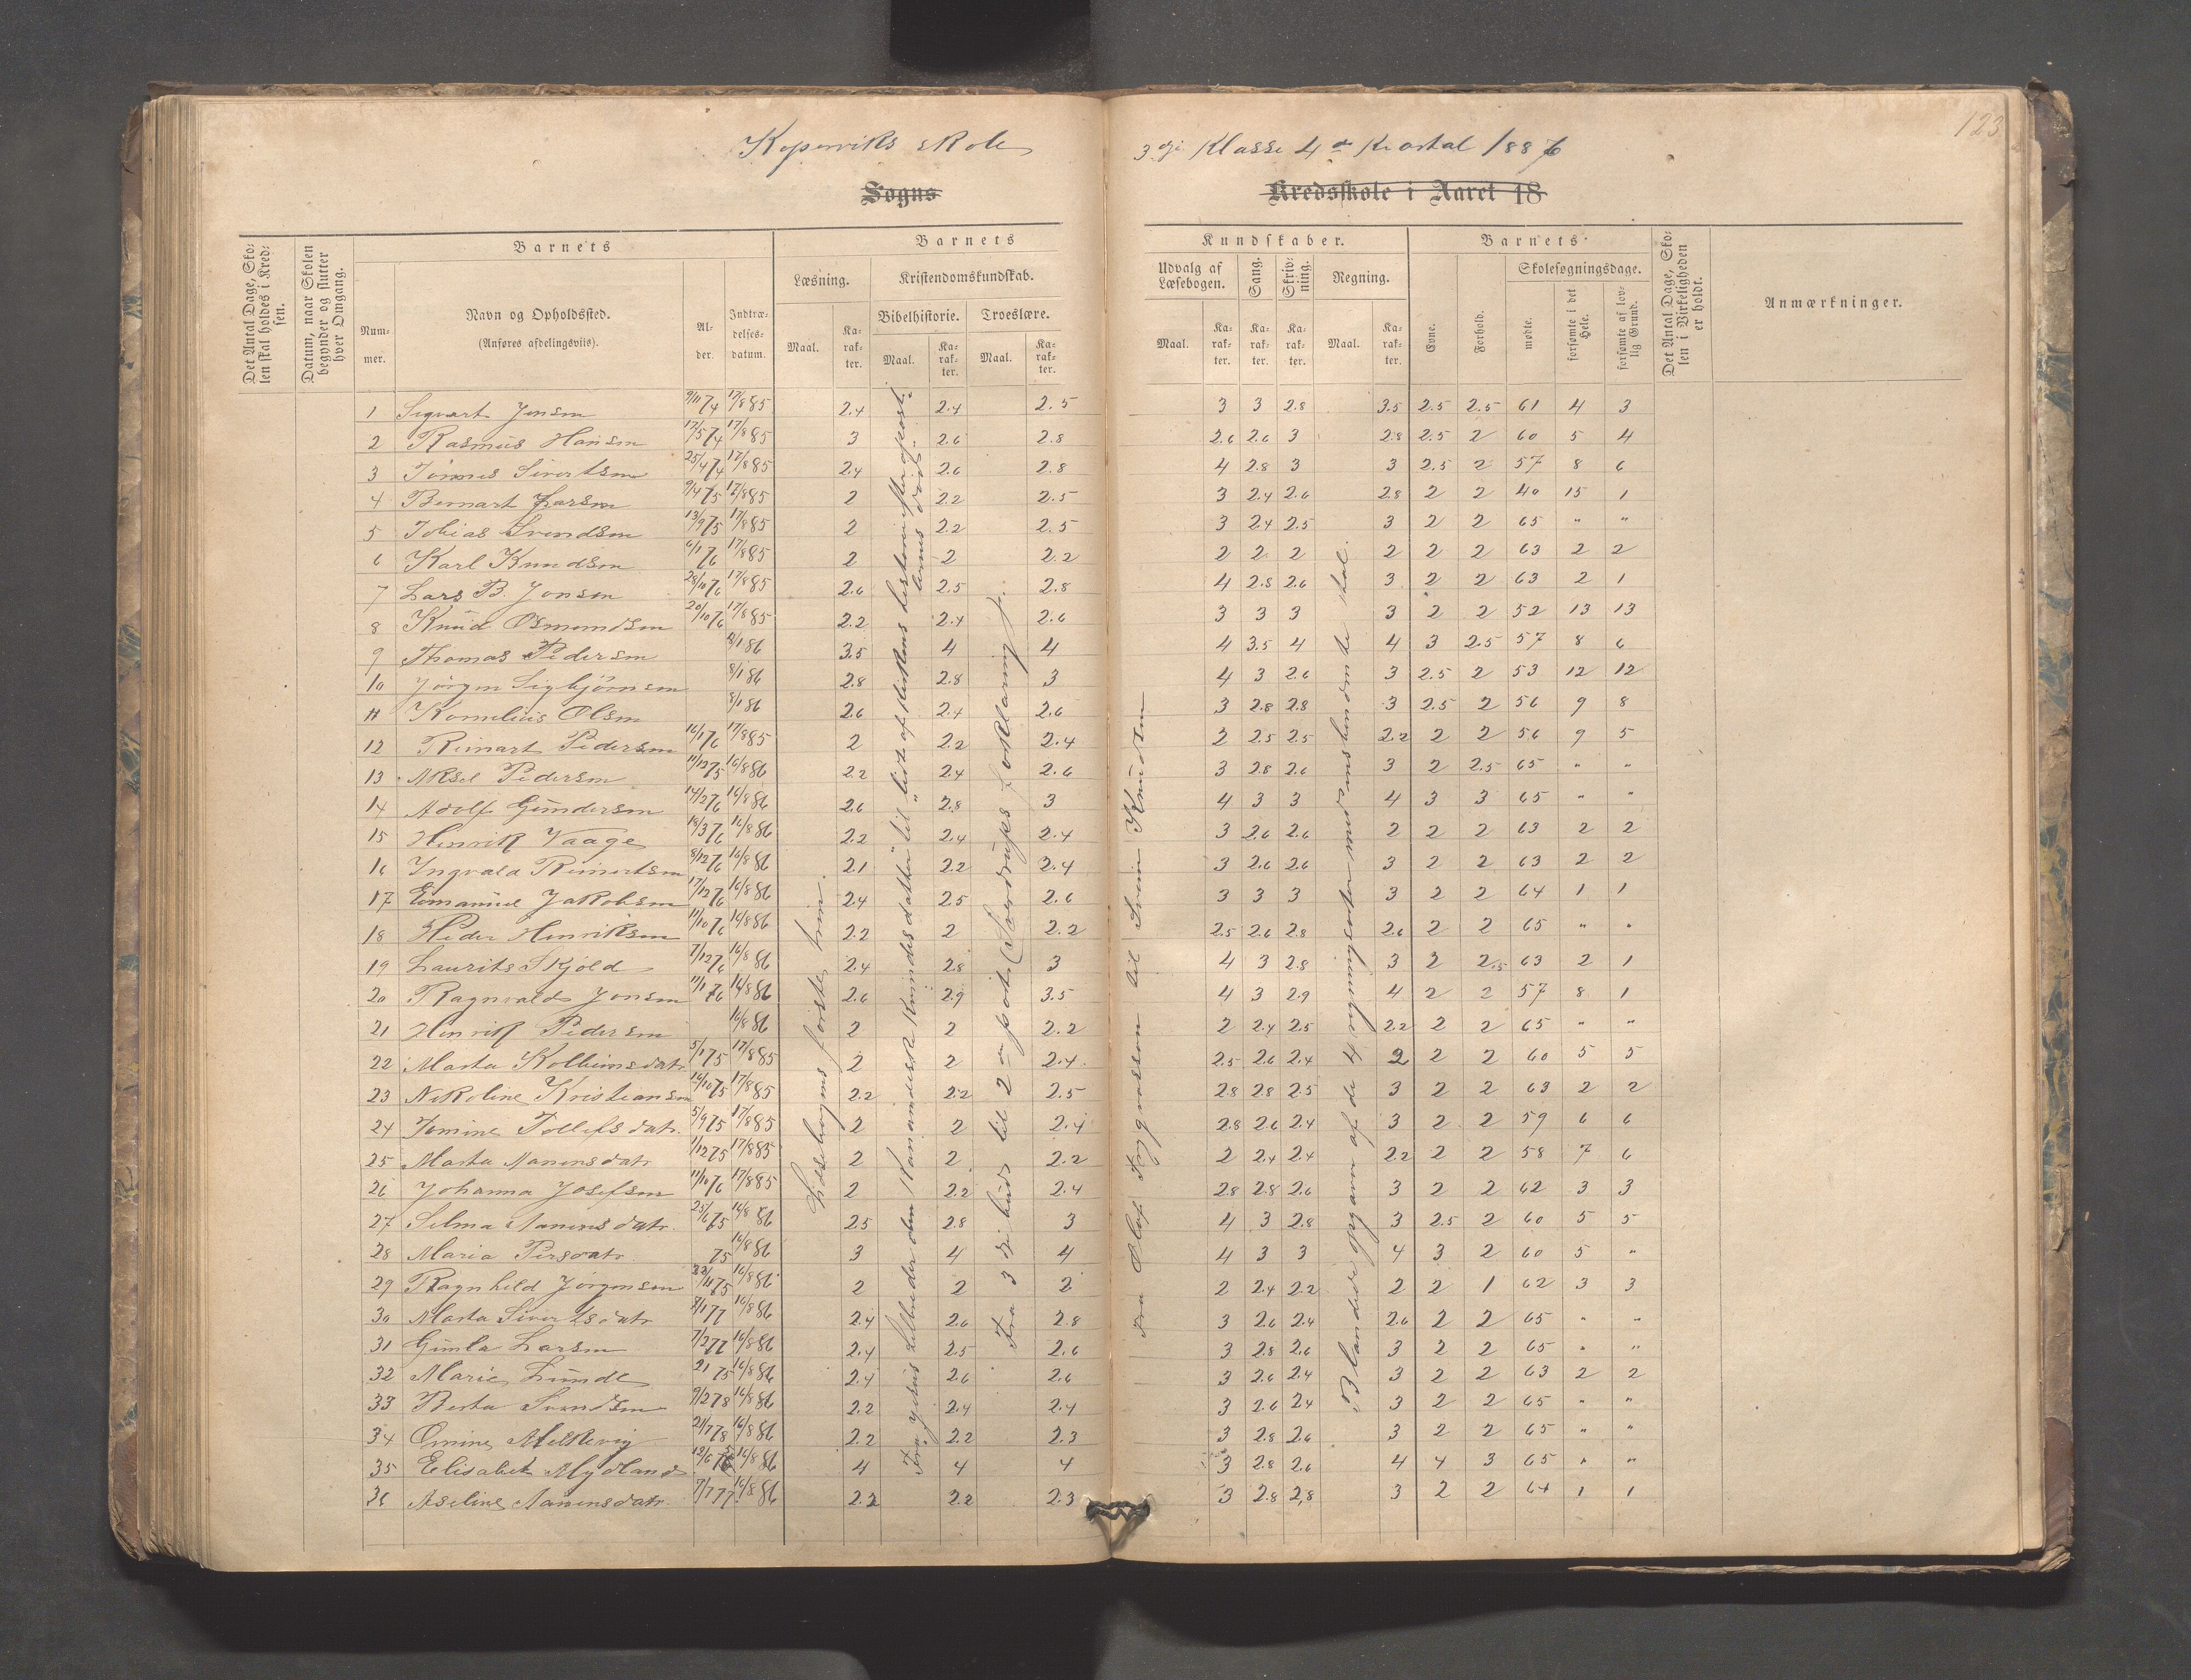 123
Koperviks skole 3die Klasse 4de Kvartal 1886
Sogns Kredsskole i Aaret 18
Det Antal Dage, Skolen skal holdes i Kredsen.
Datum, naar Skolen begynder og slutter hver Omgang.
Barnets
Nummer.
Navn og Opholdssted.
(Anføres afdelingsviis).
Alder.
Indtrædelsesdatum.
Barnets Kundskaber.
Læsning.
Maal.
Karakter.
Kristendomskundskab.
Bibelhistorie.
Maal.
Karakter.
Troeslære.
Maal.
Karakter.
Udvalg af Læsebogen.
Maal.
Karakter.
Sang.
Karakter.
Skrivning.
Karakter.
Regning.
Maal.
Karakter.
Barnets
Evne.
Forhold.
Skolesøgningsdage.
mødte.
forsømte i det Hele.
forsømte af lovlig Grund.
Det Antal Dage, Skolen i Virkeligheden er holdt.
Anmærkninger.
1 Sigvart Jonsen 9/11 74 17/8 85 2.4 2.4 2.5 3 3 2.8 3.5 2.5 2.5 61 4 3
2 Rasmus Hansen 17/5 74 17/8 85 3 2.6 2.8 2.6 2.6 3 2.8 2.5 2 60 5 4
3 Tönnes Sivertsen 25/4 74 17/8 85 2.4 2.6 2.8 4 2.8 3 3 2.5 2 57 8 6
4 Bernart Larsen 9/4 75 17/8 85 2 2.2 2.5 3 2.4 2.6 2.8 2 2 40 15 1
5 Tobias Svendsen 13/9 75 17/8 85 2 2.2 2.5 3 2.4 2.5 3 2 2 65 " "
6 Karl Knudsen 6/1 76 17/8 85 2 2 2.2 2 2 2 2 2 2 63 2 2
7 Lars B. Jonsen 28/10 76 17/8 85 2.6 2.5 2.8 4 2.8 2.6 3 2 2 63 2 1
8 Knud Osmundsen 20/10 76 17/8 85 2.2 2.4 2.6 3 3 3 3 2 2 52 13 13
9 Thomas Pedersen 8/1 86 3.5 4 4 4 3.5 4 4 3 2.5 57 8 6
10 Jörgen Sigbjörnsen 8/1 86 2.8 2.8 3 4 3 2.6 3 2.5 2 53 12 12
11 Kornelius Olsen 8/1 86 2.6 2.4 2.6 3 2.8 2.8 3 2.5 2 56 9 8
12 Reinart Pedersen 16/1 76 17/8 85 2 2.2 2.4 2 2.5 2.5 2.2 2 2 56 9 5
13 Aksel Pedersen 11/12 75 16/8 86 2.2 2.4 2.6 3 2.8 2.6 3 2 2.5 65 " "
14 Adolf Gundersen 14/2 76 16/8 86 2.6 2.8 3 4 3 3 4 3 3 65 " "
15 Henrik Vaage 18/3 76 16/8 86 2.2 2.4 2.4 3 2.6 2.6 2 2 2 63 2 2
16 Ingvald Reinertsen 8/12 76 16/8 86 2.1 2.2 2.4 3 2.6 2.6 3 2 2 63 2 2
17 Emanuel Jakobsen 17/12 76 16/8 86 2.4 2.5 2.6 3 3 3 3 2 2 64 1 1
18 Peder Henriksen 11/10 76 16/8 86 2.2 2 2.2 2.5 2.6 2.8 2.6 2 2 65 " "
19 Laurits Skjold 7/12 76 16/8 86 2.4 2.8 3 4 3 2.8 3 2 2.5 63 2 1
20 Ragnvald Jonsen 11/1 76 16/8 86 2.6 2.9 3.5 4 3 2.9 4 2 2 57 8 1
21 Henrik Pedersen 16/8 86 2 2 2.2 2 2.4 2.5 2.2 2 2 65 " "
22 Marta Kolbeinsdatr 5/1 75 17/8 85 2 2 2.4 2.5 2.6 2.4 2 2 2 60 5 5
23 Nikoline Kristiansen 16/10 75 17/8 85 2.2 2.2 2.5 2.8 2.8 2.5 3 2 2 63 2 2
24 Tomine Tollefsdatr. 5/9 75 17/8 85 2 2 2.4 2.8 2.6 2.4 3 2 2 59 6 6
25 Marta Aanensdatr 1/12 75 17/8 85 2 2 2.2 2 2.4 2.4 2.2 2 2 58 7 6
26 Johanna Josefsen 11/10 76 17/8 85 2 2.2 2.4 2.8 2.8 2.6 3 2 2 62 3 3
27 Selma Aanensdatr. 25/6 75 16/8 86 2.5 2.8 3 4 3 2.8 3 2.5 2 60 5 5
28 Maria Persdatr. 75 16/8 86 3 4 4 4 3 3 4 3 2 60 5 "
29 Ragnhild Jörgensen 75 16/8 86 2 2 2 2 2.4 2.2 2 2 1 62 3 3
30 Marta Sivertsdatr 77 16/8 86 2.4 2.6 2.8 3 2.6 2.4 2.6 2 2 65 " "
31 Gunla Larsen 7/2 77 16/8 86 2.4 2.5 2.6 3 2.8 2.6 3 2 2 65 " "
32 Marie Lunde 75 16/8 86 2.4 2.6 2.6 3 2.6 2.4 3 2 2 63 2 2
33 Berta Svendsen 9/2 78 16/8 86 2.2 2.4 2.4 3 2.6 2.4 3 2 2 65 " "
34 Omine Melkevig 21/7 78 16/8 86 2.2 2.2 2.3 3 2.8 2.6 3 2 2 65 " "
35 Elisabet Mydland 16/8 86 4 4 4 3 2.8 2.6 4 4 3 65 " "
36 Aseline Aanensdatr. 7/7 77 16/8 86 2.2 2.2 2.3 3 2.8 2.8 3 2 2 64 1 1
Læsebogens förste trin.
Fra Jesus helbreder den kananæiske kvindes datter til "lidt af kirkens historie efter apostlernes död."
Fra 3die bud til 2den part (Sverdrups forklaring).
Fra Olaf Trygvason til Svein Knudsen
Blandede opgaver af de 4 regningsarter med ensbenævnte tal.